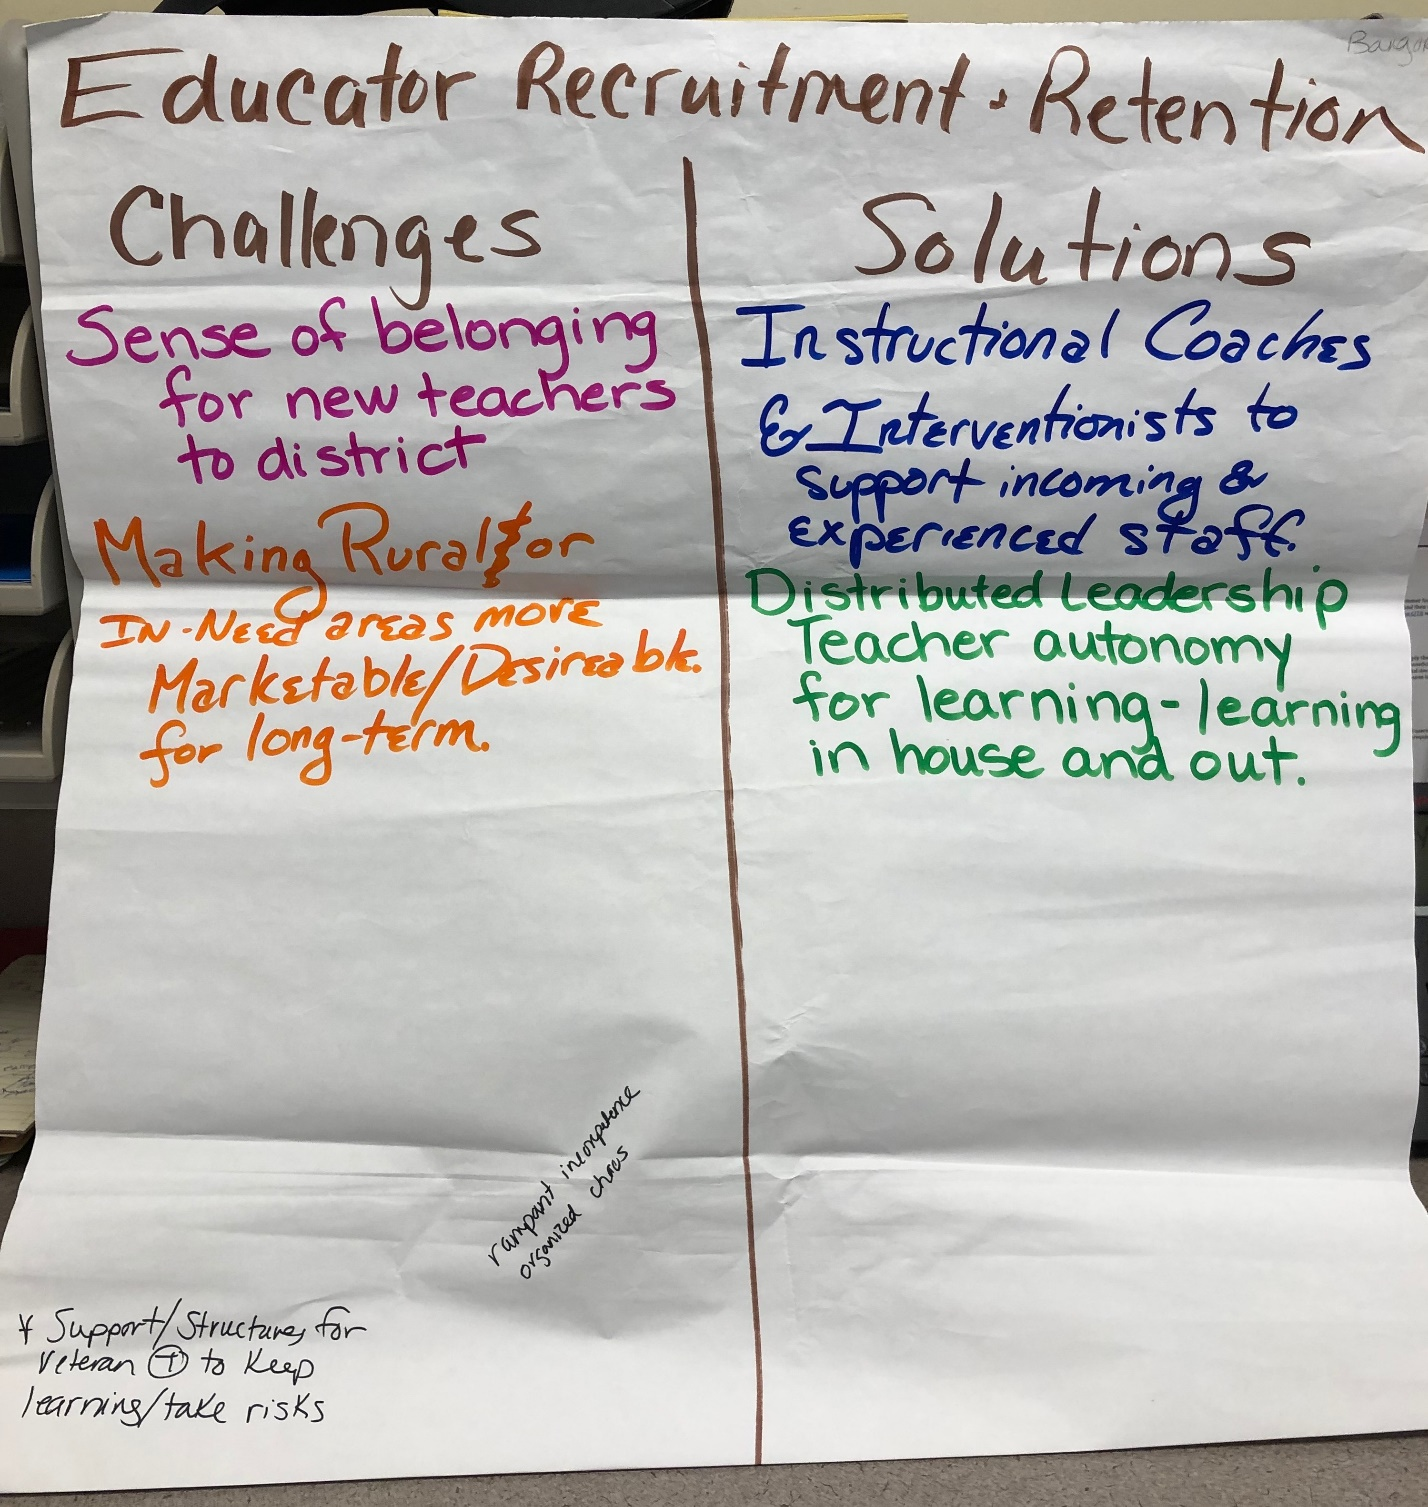 Educator Recruitment · Retention
Challenges
Sense of belonging
for new teachers
to district
Making Rural & or
In-Need areas more
Marketable/Desireable.
for long-term.
rampant incompetence
organized chaos
* Support/Structures for
veteran Ⓣ to keep
learning/take risks
Solutions
Instructional Coaches
& Interventionists to
support incoming &
experienced staff.
Distributed Leadership
Teacher autonomy
for learning - learning
in house and out.